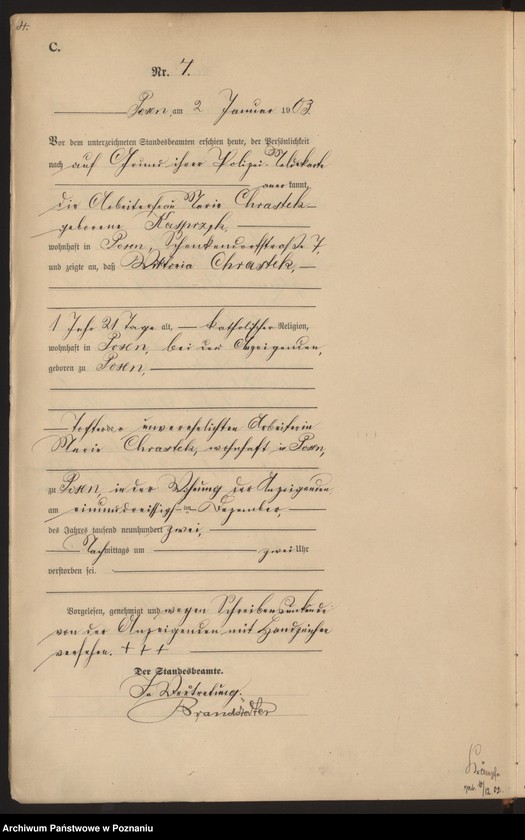 4.
C.
Nr. 7.
Posen, am 2 Januar 1903.
Vor dem unterzeichneten Standesbeamten erschien heute, der Persönlichkeit
nach auf Grund ihrer Polizei-Meldekarte
anerkannt,
die Arbeiterfrau Marie Chrastek
geborene Kasprzyk,
wohnhaft in Posen, Schenkendorfstraße 7,
und zeigte an, daß Viktoria Chrastek,
1 Jahr 21 Tage alt, katholischer Religion,
wohnhaft in Posen, bei der Anzeigenden,
geboren zu Posen,
Tochter der unverehelichten Arbeiterin
Marie Chrastek, wohnhaft in Posen,
zu Posen, in der Wohnung der Anzeigenden
am einunddreißigsten Dezember,
des Jahres tausend neunhundert zwei,
Nachmittags um zwei Uhr
verstorben sei.
Vorgelesen, genehmigt und wegen Schreibensunkunde
von der Anzeigenden mit Handzeichen
versehen. + + +
Der Standesbeamte.
In Vertretung.
Brandstädter
Krämpfe
Archiwum Państwowe w Poznaniu